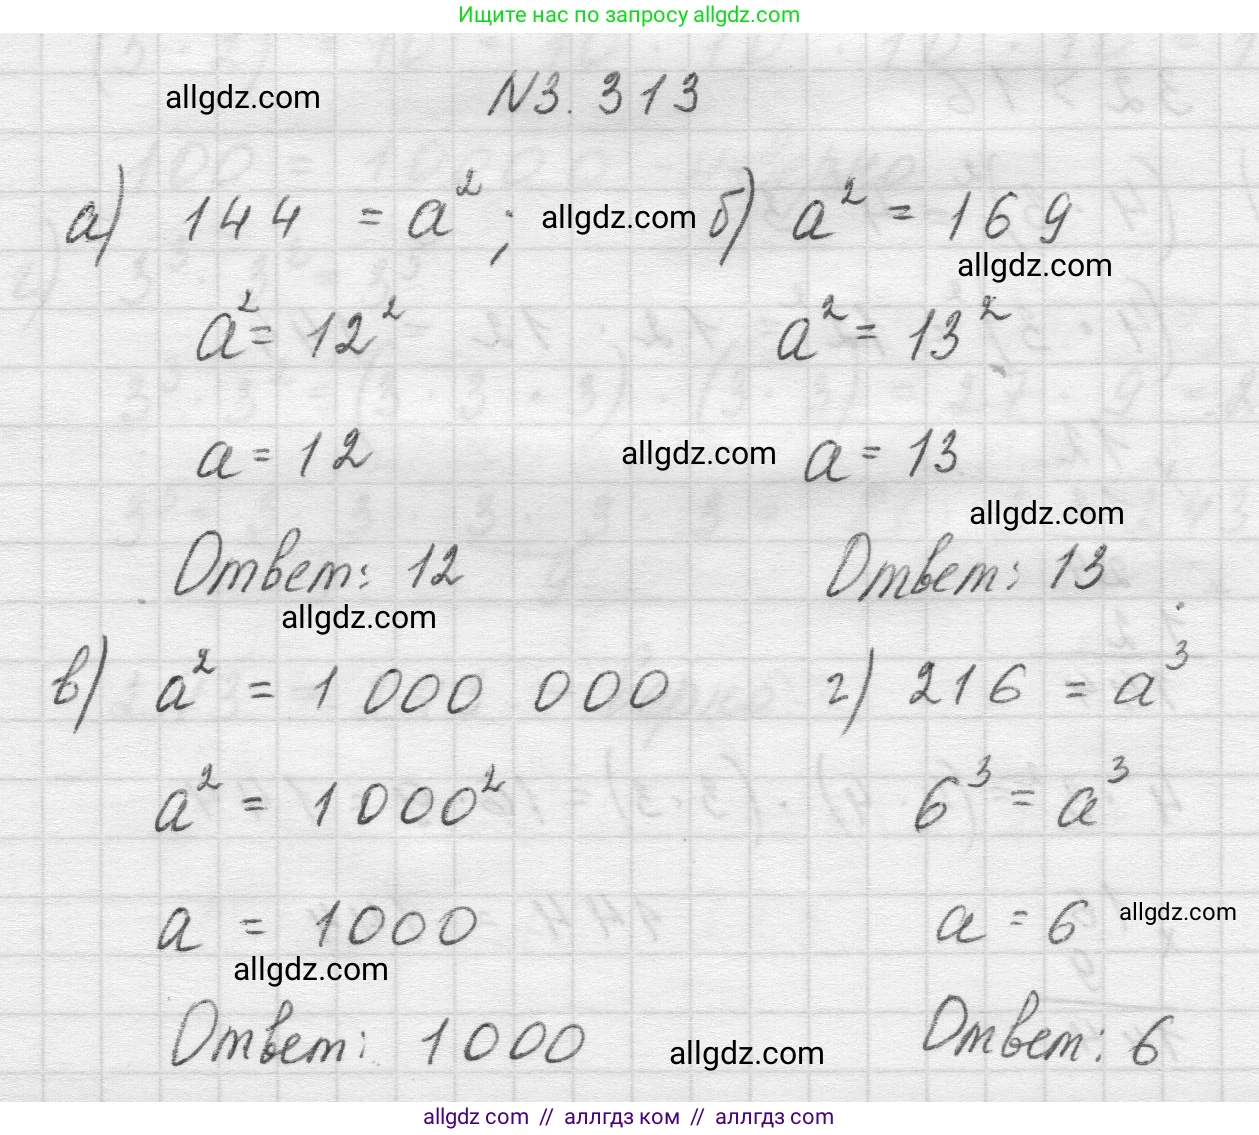 Ищите нас по запросу allgdz.com
allgdz.com
N3.313
а) 144 = a²;
allgdz.com
б) a² = 169
allgdz.com
a² = 12²
a² = 13²
a = 12
allgdz.com
a = 13
allgdz.com
Ответ: 12
Ответ: 13
allgdz.com
в) a² = 1 000 000
г) 216 = a³
a² = 1000²
6³ = a³
a = 1000
a = 6
allgdz.com
allgdz.com
Ответ: 1000
allgdz.com
Ответ: 6
allgdz.com // аллгдз ком // аллгдз.com